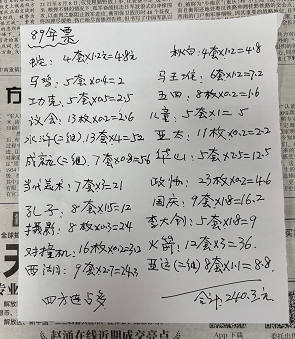 89年票
蛇: 4套×1.2元=4.8元 杜鹃: 4套×1.2=4.8
马鸡: 5套×0.4=2 马王堆: 6套×1.2=7.2
功集: 5套×0.5=2.5 五四: 8枚×0.2=1.6
议会: 13枚×0.2=2.6 儿童: 5套×1=5
水浒(二组) 13套×4=52 亚太: 11枚×0.2=2.2
成就(二组) 7套×0.8=5.6 华山: 5套×2.5=12.5
当代美术: 7套×3=21 政协: 23枚×0.2=4.6
孔子: 8套×1.5=12 国庆: 9套×1.8=16.2
摄影: 8枚×0.3=24 李大钊: 5套×1.8=9
对撞机: 16枚×0.2=3.2 火箭: 12套×3=36.
西湖: 9套×2.7=24.3 亚运(二组) 8套×1.1=8.8.
四方连占多 合计240.3元
赵涌在线近期成交亮点